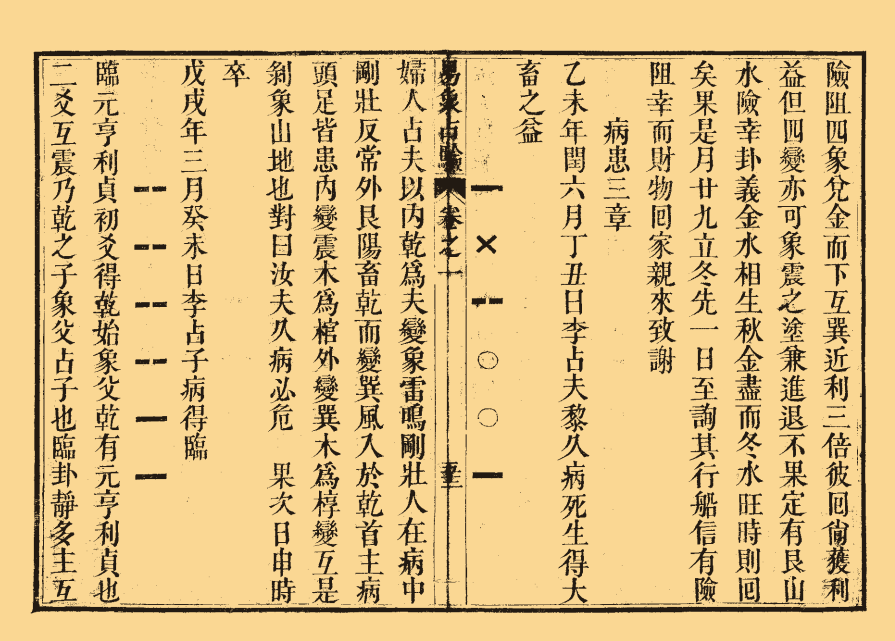 險阻四象兌金而下互巽近利三倍彼回尙獲利
益但四變亦可象震之塗兼進退不果定有艮山
水險幸卦義金水相生秋金盡而冬水旺時則回
矣果是月廿九立冬先一日至詢其行船信有險
阻幸而財物回家親來致謝
病患三章
乙未年閏六月丁丑日李占夫黎久病死生得大
畜之益
易象占驗 卷之一 
婦人占夫以內乾爲夫變象雷鳴剛壯人在病中
剛壯反常外艮陽畜乾而變巽風入於乾首主病
頭足皆患內變震木爲棺外變巽木爲椁變互是
剝象山地也對曰汝夫久病必危 果次日申時
卒
戊戌年三月癸未日李占子病得臨
臨元亨利貞初爻得乾始象父乾有元亨利貞也
二爻互震乃乾之子象父占子也臨卦靜多主互